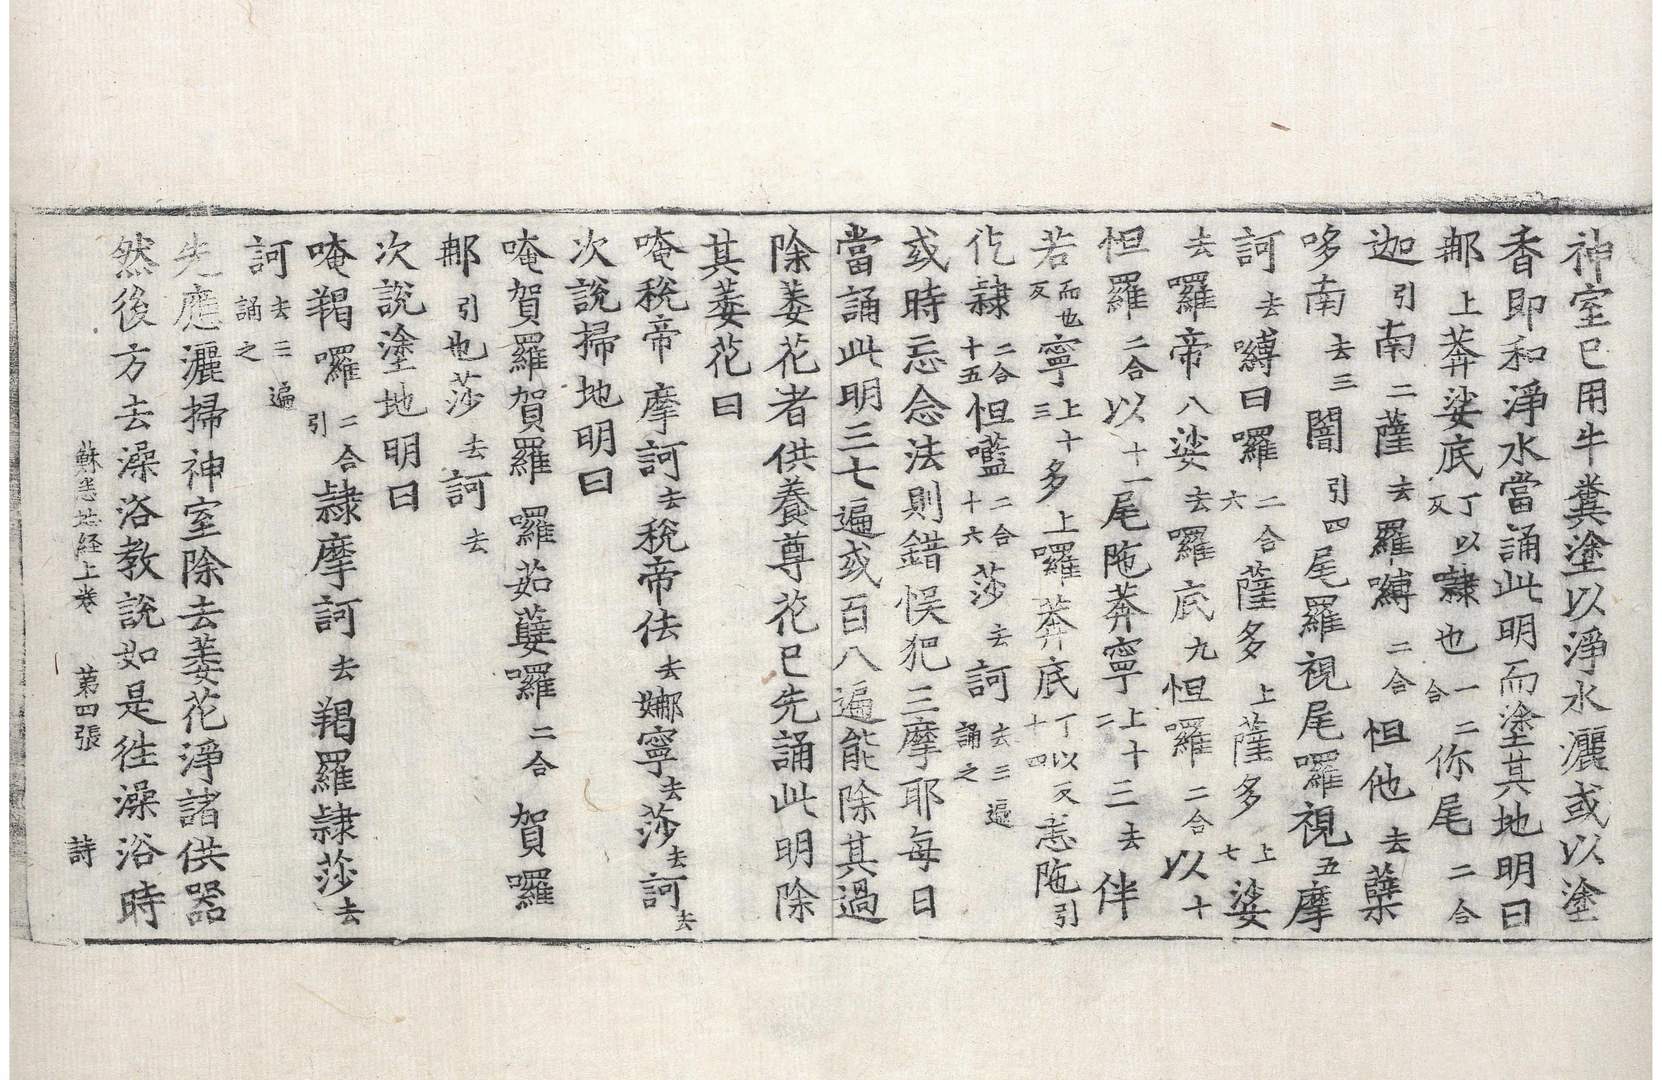 神室已用牛糞塗以淨水灑或以塗
香即和淨水當誦此明而塗其地明曰
那上莽娑底丁以反隸也一二合你尾二合
迦引南二薩去羅嚩二合怛他去蘖
哆南去三闇引四尾羅視尾囉視五摩
訶去嚩曰囉二合六薩多上薩多上七娑
去囉帝八娑去囉底九怛囉二合以十
怛羅二合以十一尾陁莽寧上十二三去伴
若而也反寧上十三多上囉莽底丁以反十四悉陁引
仡隸二合十五怛㘕二合十六莎去訶去三遍誦之
或時忘念法則錯悞犯三摩耶每日
當誦此明三七遍或百八遍能除其過
除萎花者供養尊花已先誦此明除
其萎花曰
唵稅帝摩訶去稅帝佉去娜寧去莎去訶去
次說掃地明曰
唵賀羅賀羅囉茹蘖囉二合賀囉
那引也莎去訶去
次說塗地明曰
唵羯囉二合引隸摩訶去羯羅隸莎去
訶去三遍誦之
先應灑掃神室除去萎花淨諸供器
然後方去澡浴教說如是往澡浴時
蘇悉地経上卷　第四張　詩